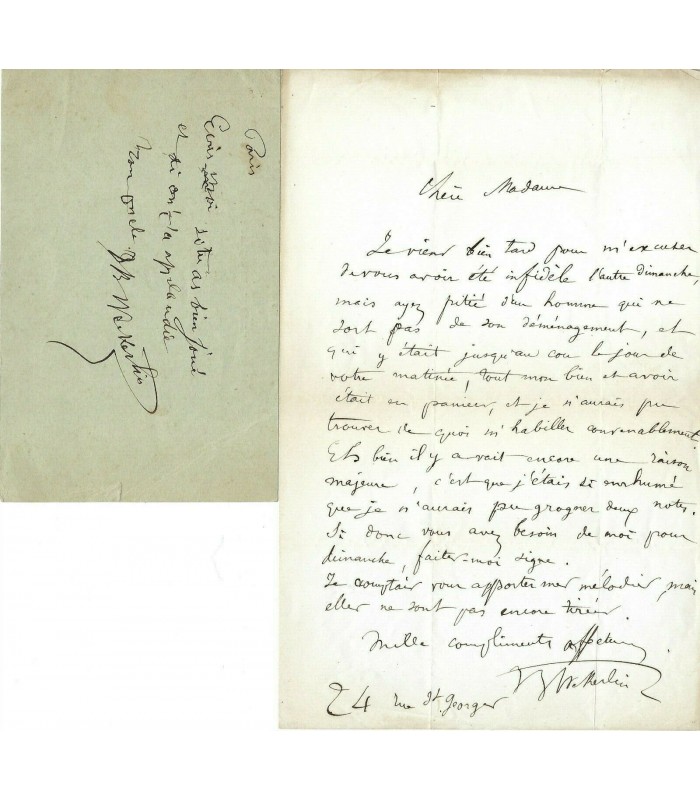 Paris
Ecris-moi si tu as bien joué
et si on t'a applaudie
ton oncle JB Wekerlin
Chère Madame
Je viens bien tard pour m'excuser
de vous avoir été infidèle l'autre dimanche,
mais ayez pitié d'un homme qui ne
sort pas de son déménagement, et
qui y était jusqu'au cou le jour de
votre matinée, tout mon bien et avoir
était en panier, et je n'aurais pu
trouver de quoi m'habiller convenablement.
Eh bien il y avait encore une raison
majeure, c'est que j'étais si enrhumé
que je n'aurais pu grogner deux notes.
Si donc vous avez besoin de moi pour
dimanche, faites-moi signe.
Je comptais vous apporter mes mélodies, mais
elles ne sont pas encore tirées.
Mille compliments
JB Wekerlin
24 rue St. Georges